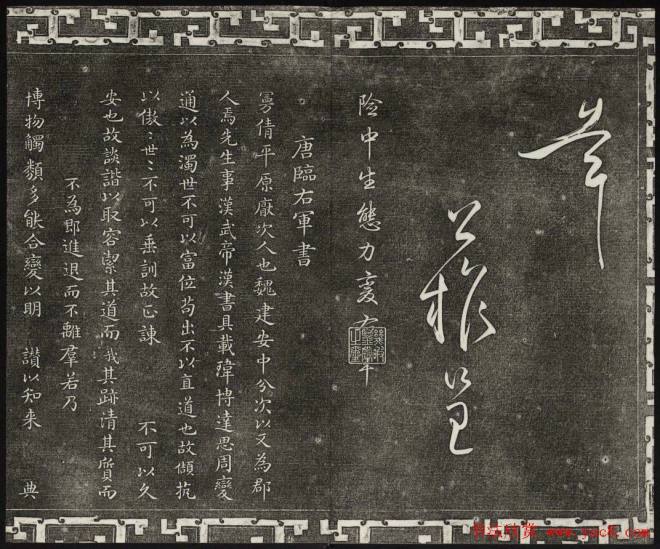 險中生態力變右
唐臨右軍書
曼倩平原厭次人也魏建安中分次以又為郡
人焉先生事漢武帝漢書具載瑋博達思周變
通以為濁世不可以富位苟出不以直道也故傾抗
以傲〻世〻不可以垂訓故正諫 不可以久
安也故談諧以取容潔其道而我其跡清其質而
不為邪進退而不離羣若乃
博物觸類多能合變以明 讃以知来 典
书法欣赏 www.yac8.com